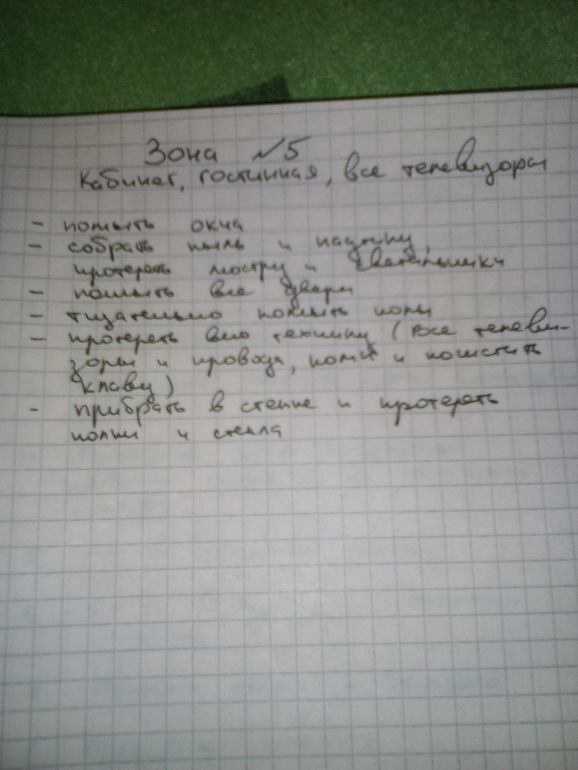 Зона №5
Кабинет, гостинная, все телевизоры
- помыть окна
- собрать пыль и паутину,
протереть люстру и светильники
- помыть все двери
- тщательно помыть полы
- протереть всю технику (все телеви-
зоры и провода, комп и почистить
клаву)
- прибрать в стенке и протереть
полки и стекла